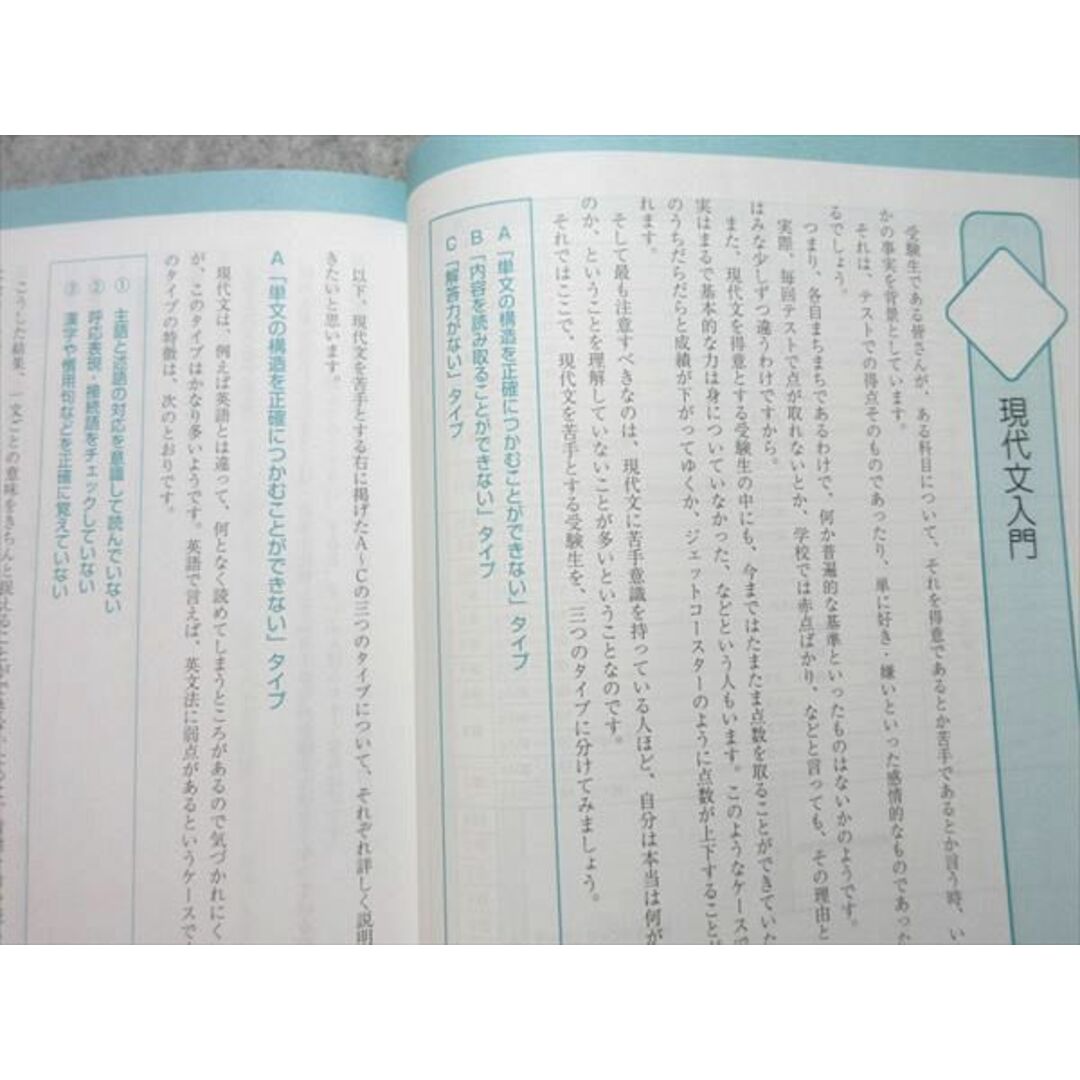 現代文入門
受験生である皆さんが、ある科目について、それを得意であるとか苦手であるとか言う時、い
かの事実を背景としています。
それは、テストでの得点そのものであったり、単に好き・嫌いといった感情的なものであった
るでしょう。
つまり、各自まちまちであるわけで、何か普遍的な基準といったものはないかのようです。
実際、毎回テストで点が取れないとか、学校では赤点ばかり、などと言っても、その理由と
はみな少しずつ違うわけですから。
また、現代文を得意とする受験生の中にも、今まではたまたま点数を取ることができていた
実はまるで基本的な力は身についていなかった、などという人もいます。このようなケースで
のうちだらだらと成績が下がってゆくか、ジェットコースターのように点数が上下することが
れます。
そして最も注意すべきなのは、現代文に苦手意識を持っている人ほど、自分は本当は何が
のか、ということを理解していないことが多いということなのです。
それではここで、現代文を苦手とする受験生を、三つのタイプに分けてみましょう。
A 「単文の構造を正確につかむことができない」タイプ
B 「内容を読み取ることができない」タイプ
C 「解答力がない」タイプ
以下、現代文を苦手とする右に掲げたA～Cの三つのタイプについて、それぞれ詳しく説明
きたいと思います。
A 「単文の構造を正確につかむことができない」タイプ
現代文は、例えば英語とは違って、何となく読めてしまうところがあるので気づかれにく
が、このタイプはかなり多いようです。英語で言えば、英文法に弱点があるというケースで
のタイプの特徴は、次のとおりです。
① 主語と述語の対応を意識して読んでいない
② 呼応表現・接続語をチェックしていない
③ 漢字や慣用句などを正確に覚えていない
こうした結果、一文ごとの意味をきちんと捉えることができない